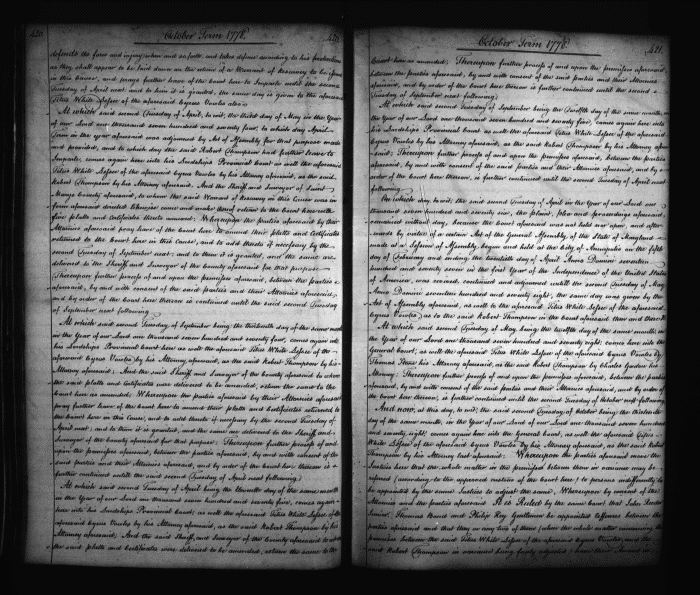 420. October Term 1778. 420
defends the force and injury when and so forth and takes defence according to his pretentions
as they shall appear to be laid down on the return of a Warrant of Resurvey to be issued
in this Cause, and prays further leave of the Court here to Imparle until the second
Tuesday of April next and to him it is granted, the same day is given to the aforesaid
Titius White Lessee of the aforesaid Cyrus Vincba also;
At which said second Tuesday of April, to wit, the third day of May in the Year
of our Lord one thousand seven hundred and seventy four, to which day April
Term in the year aforesaid was adjourned by Act of Assembly for that purpose made
and provided, and to which day the said Robert Thompson had further leave to
Imparle, comes again here into his Lordships Provincial Court as well the aforesaid
Titius White Lessee of the aforesaid Cyrus Vincba by his Attorney aforesaid, as the said
Robert Thompson by his Attorney aforesaid. And the Sheriff and Surveyor of Saint
Marys County aforesaid, to whom the said Warrant of Resurvey in this Cause was in
form aforesaid directed thereof and make thereof return to the Court here with
five platts and Certificates thereto annexed. Whereupon the parties aforesaid by their
Attornies aforesaid pray leave of the Court here to amend their platts and Certificates
returned to the Court here in this Cause, and to add thereto if necessary by the
second Tuesday of September next; and to them it is granted, and the same are
delivered to the Sheriff and Surveyor of the County aforesaid for that purpose
Thereupon further process of and upon the premises aforesaid, between the parties
aforesaid, by and with consent of the said parties and their Attornies aforesaid
and by order of the Court here thereon is continued until the said second Tuesday
of September next following.
At which said second Tuesday of September being the thirteenth day of the same month
in the Year of our Lord one thousand seven hundred and seventy four, comes again into
his Lordships Provincial Court here as well the aforesaid Titius White Lessee of the
aforesaid Cyrus Vincba by his Attorney aforesaid, as the said Robert Thompson by his
Attorney aforesaid; And the said Sheriff and Surveyor of the County aforesaid to whom
the said platts and Certificates were delivered to be amended, return the same to the
Court here as amended: Whereupon the parties aforesaid by their Attornies aforesaid
pray further leave of the Court here to amend their platts and Certificates returned to
the Court here in this Cause, and to add thereto if necessary by the second Tuesday of
April next; and to them it is granted, and the same are delivered to the Sheriff and
Surveyor of the County aforesaid for that purpose; Thereupon further process of and
upon the premises aforesaid, between the parties aforesaid, by and with consent of the
said parties and their Attornies aforesaid, and by order of the Court here thereon is
further continued until the said second Tuesday of April next following.
At which said second Tuesday of April being the eleventh day of the same month
in the Year of our Lord one thousand seven hundred and seventy five, comes again
here into his Lordships Provincial Court, as well the aforesaid Titius White Lessee of the
aforesaid Cyrus Vincba by his Attorney aforesaid, as the said Robert Thompson by his
Attorney aforesaid; And the said Sheriff and Surveyor of the County aforesaid to whom
the said platts and Certificates were delivered to be amended, return the same to the
October Term 1778. 421.
Court here as amended; Thereupon further process of and upon the premises aforesaid,
between the parties aforesaid, by and with consent of the said parties and their Attornies
aforesaid, and by order of the Court here thereon is further continued until the second
Tuesday of September next following:
At which said second Tuesday of September being the twelfth day of the same month, in
the Year of our Lord one thousand seven hundred and seventy five, comes again here into
his Lordships Provincial Court as well the aforesaid Titius White Lessee of the aforesaid
Cyrus Vincba by his Attorney aforesaid, as the said Robert Thompson by his Attorney afore
said; Thereupon further process of and upon the premises aforesaid, between the parties
aforesaid, by and with consent of the said parties and their Attornies aforesaid, and by
order of the Court here thereon, is further continued until the second Tuesday of April next
following.
On which day, to wit, the said second Tuesday of April in the Year of our Lord one
thousand seven hundred and seventy six, the plaint, plea and proceedings aforesaid,
remained without day, because the Court aforesaid was not held, &c. upon, and after
wards by virtue of a certain Act of the General Assembly of the State of Maryland
made at a Session of Assembly begun and held at the City of Annapolis on the fifth
day of February and ending the twentieth day of April Anno Domini seventeen
hundred and seventy seven in the first Year of the Independence of the United States
of America, was revived, continued and adjourned until the second Tuesday of May
Anno Domini seventeen hundred and seventy eight, the same day was given by the
Act of Assembly aforesaid, as well to the aforesaid Titius White Lessee of the aforesaid
Cyrus Vincba, as to the said Robert Thompson in the Court aforesaid then and there
At which said second Tuesday of May, being the twelfth day of the same month in
the Year of our Lord one thousand seven hundred and seventy eight, comes here into the
General Court, as well the aforesaid Titius White Lessee of the aforesaid Cyrus Vincba by
Thomas Stone his Attorney aforesaid, as the said Robert Thompson by Charles Gordon his
Attorney; Thereupon further process of and upon the premises aforesaid, between the parties
aforesaid, by and with consent of the said parties and their Attornies aforesaid, and by order of
the Court here thereon, is further continued until the second Tuesday of October next following.
And now, at this day, to wit, the said second Tuesday of October being the thirteenth
day of the same month, in the Year of our Lord of one thousand seven hundred
and seventy eight, comes again here into the General Court, as well the aforesaid Titius
White Lessee of the aforesaid Cyrus Vincba by his Attorney aforesaid, as the said Robert
Thompson by his Attorney last aforesaid; Whereupon the parties aforesaid move the
Justices here that the whole matter in the premises between them in variance may be
refered (according to the approved custom of the Court here) to persons indifferently to
be appointed by the same Justices to adjust the same. Whereupon by consent of the
Attornies and the parties aforesaid It is Ruled by the same Court that John
Thomas Bond and Philip Key Gentlemen be appointed referees between the
parties aforesaid and that they or any two of them (whom the whole matter concerning the
premises between the said Titius White Lessee of the aforesaid Cyrus Vincba, and the
said Robert Thompson in variance being fairly adjusted) have their Award in